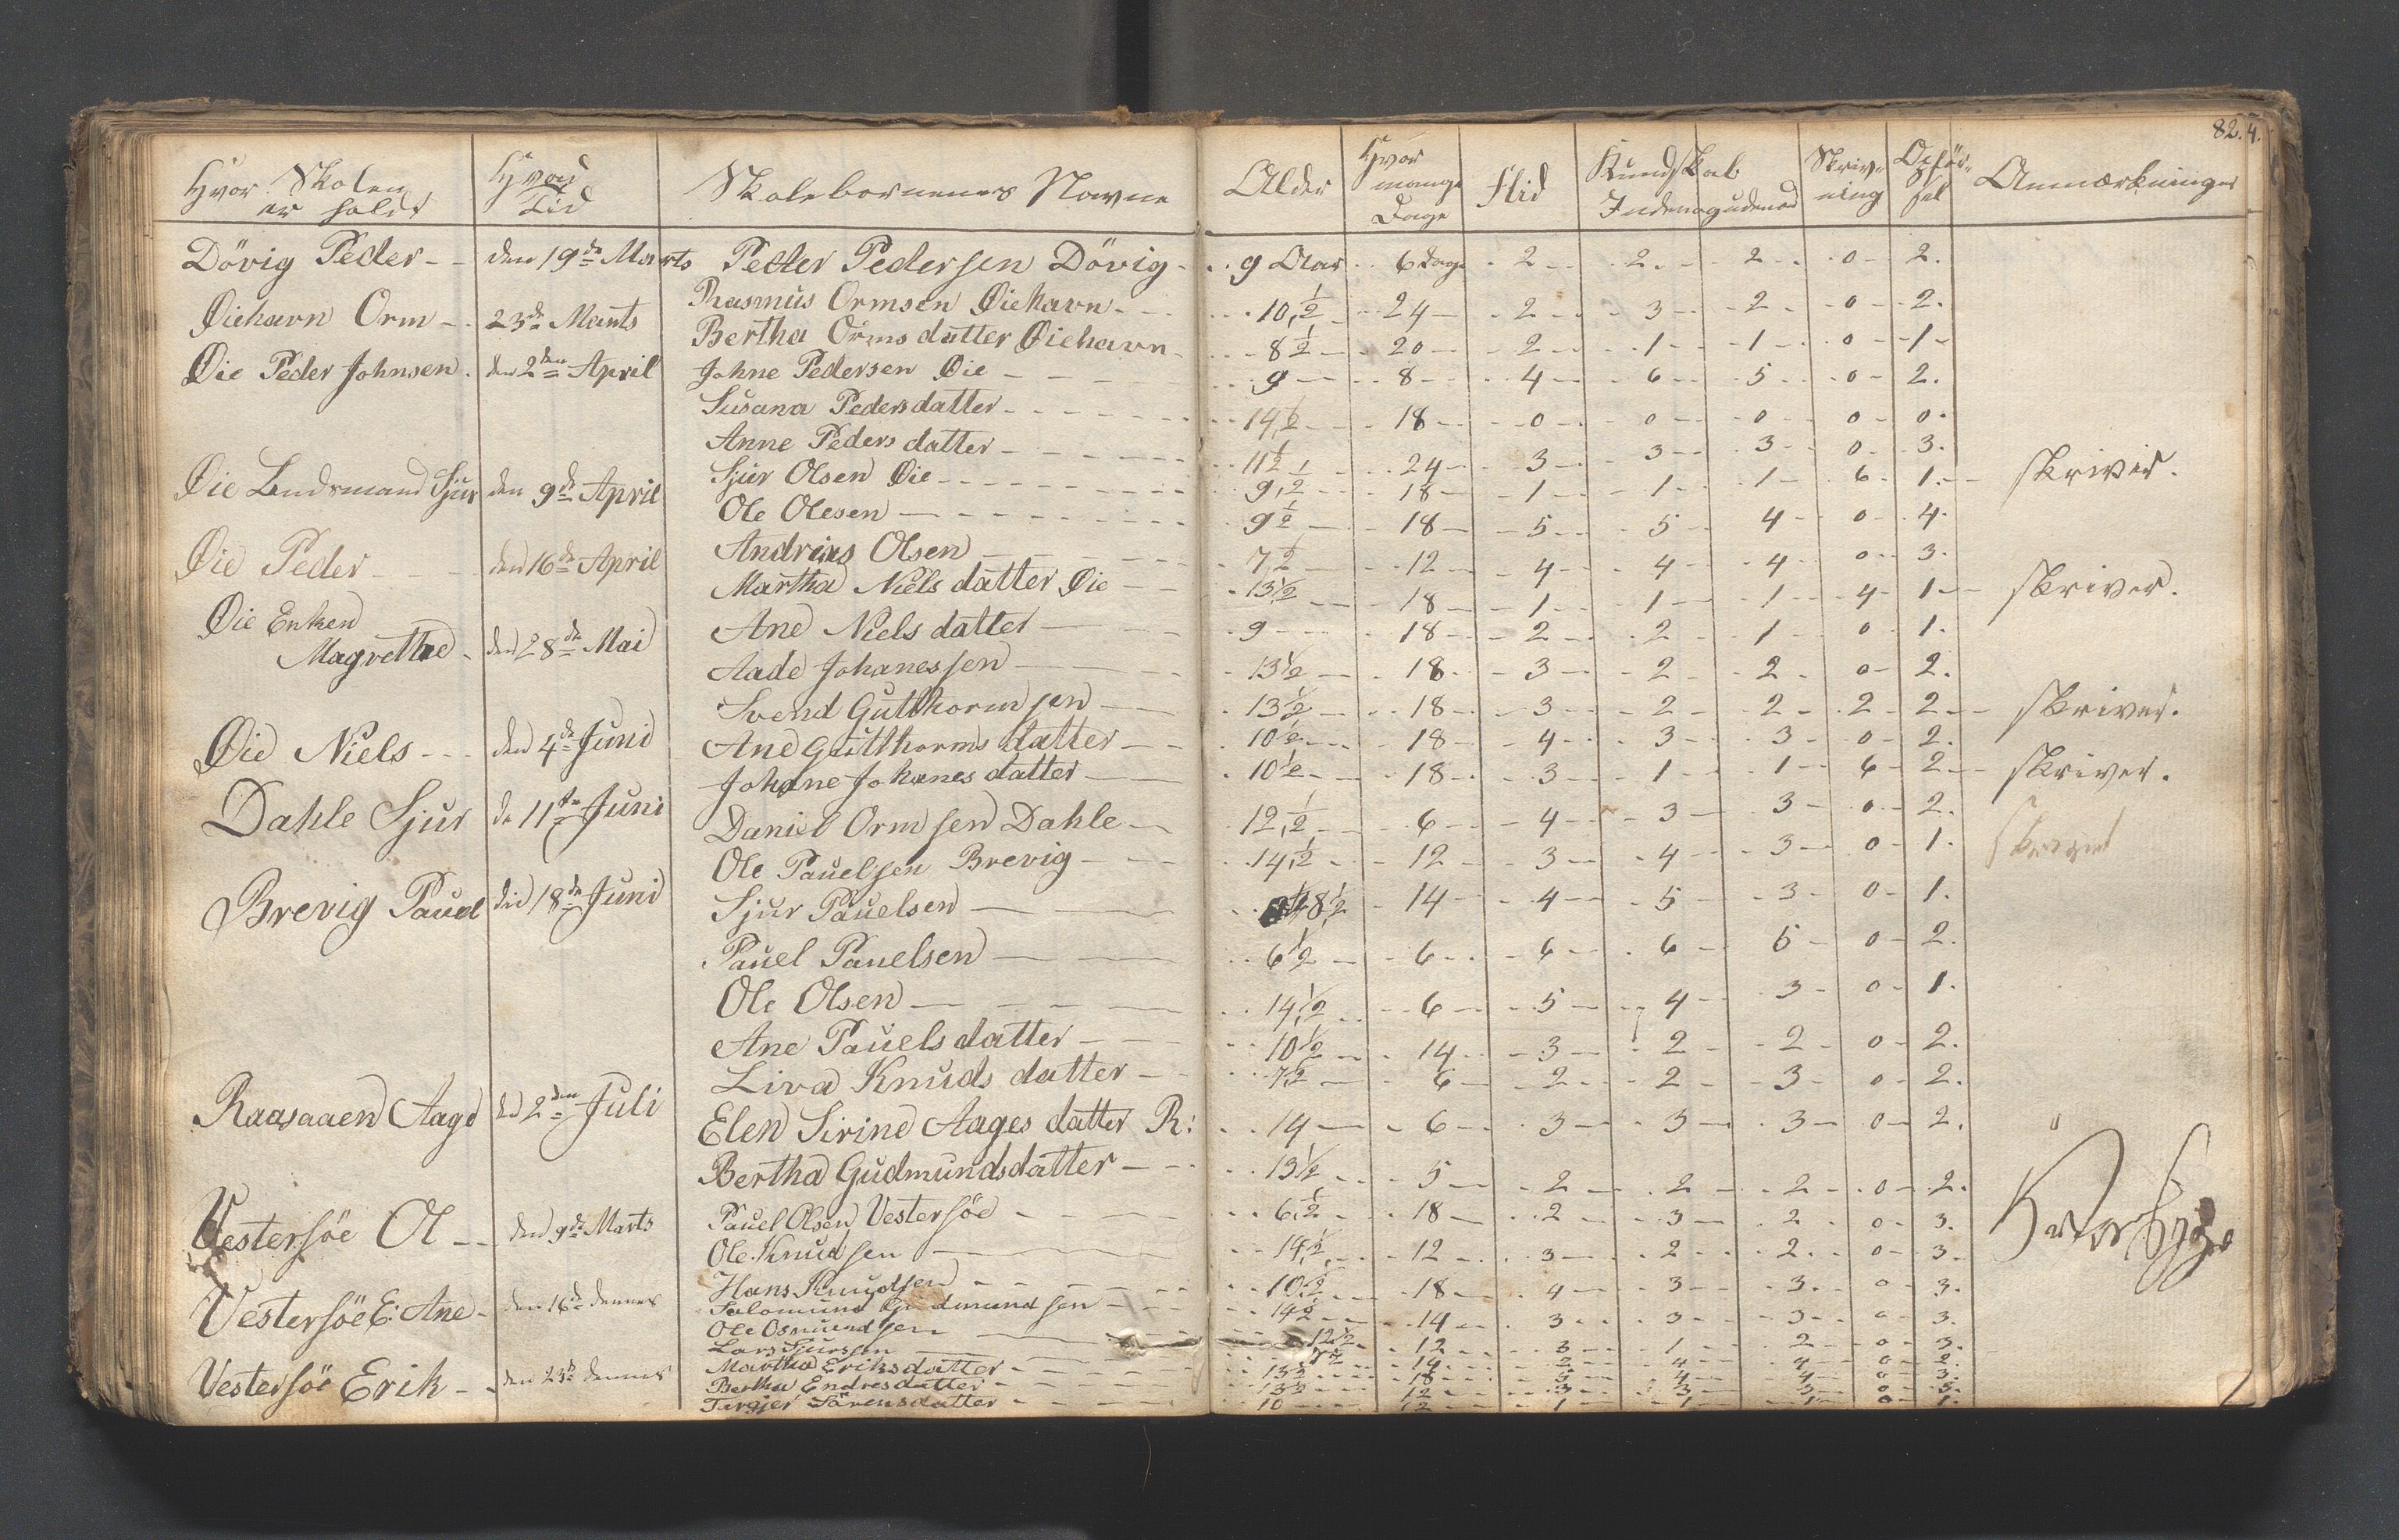 82.4.
Hvor Skolen er holdt | Hvad Tid | Skolebørnenes Navne | Alder | Hvor mange Dage | Flid | Kundskab Indenogudenad | Skrivning | Opførsel | Anmærkninger
Dövig Peder | den 19de Marts | Peder Pedersen Dövig | 9 Aar | 6 Dage | 2 | 2 | 2 | 0 | 2.
Øiehavn Orm | 23de Marts | Rasmus Ormsen Øiehavn | 10,½ | 24 | 2 | 3 | 2 | 0 | 2.
Bertha Ormsdatter Øiehavn | 8½ | 20 | 2 | 1 | 1 | 0 | 1
Øie Peder Johnsen | den 2den April | Johne Pedersen Øie | 9 | 8 | 4 | 6 | 5 | 0 | 2.
Susana Pedersdatter | 14,½ | 18 | 0 | 0 | 0 | 0 | 0.
Anne Pedersdatter | 11½ | 24 | 3 | 3 | 3 | 0 | 3.
Øie Lendsmand Sjur | den 9de April | Sjur Olsen Øie | 9,½ | 18 | 1 | 1 | 1 | 6 | 1. | skriver.
Ole Olesen | 9½ | 18 | 5 | 5 | 4 | 0 | 4.
Øie Peder | den 16de April | Andrias Olsen | 7,½ | 12 | 4 | 4 | 4 | 0 | 3.
Martha Nielsdatter Øie | 13½ | 18 | 1 | 1 | 1 | 4 | 1 | skriver.
Øie Enken Magrethe | den 28de Mai | Ane Nielsdatter | 9 | 18 | 2 | 2 | 1 | 0 | 1.
Aade Johanessen | 13½ | 18 | 3 | 2 | 2 | 0 | 2.
Svend Gutthormsen | 13½ | 18 | 3 | 2 | 2 | 2 | 2 | skriver.
Øie Niels | den 4de Juni | Ane Gutthormsdatter | 10½ | 18 | 4 | 3 | 3 | 0 | 2.
Johane Johanesdatter | 10½ | 18 | 3 | 1 | 1 | 6 | 2 | skriver.
Dahle Sjur | de 11te Juni | Daniel Ormsen Dahle | 12,½ | 6 | 4 | 3 | 3 | 0 | 2.
Ole Pauelsen Brevig | 14,½ | 12 | 3 | 4 | 3 | 0 | 1.
Brevig Pauel | den 18de Juni | Sjur Pauelsen | 8½ | 14 | 4 | 5 | 3 | 0 | 1.
Pauel Pauelsen | 6½ | 6 | 6 | 6 | 6 | 0 | 2.
Ole Olsen | 14,½ | 6 | 5 | 4 | 3 | 0 | 1.
Ane Pauelsdatter | 10½ | 14 | 3 | 2 | 2 | 0 | 2.
Liva Knudsdatter | 7,½ | 6 | 2 | 2 | 3 | 0 | 2.
Raasaaen Aage | den 2den Juli | Elen Sirine Aagesdatter R: | 14 | 6 | 3 | 3 | 3 | 0 | 2.
Bertha Gudmundsdatter | 13½ | 5 | 2 | 2 | 2 | 0 | 2.
Vestersöe Ol | den 9de Marts | Pauel Olsen Vestersöe | 6,½ | 18 | 2 | 3 | 2 | 0 | 3.
Ole Knudsen | 14,½ | 12 | 3 | 2 | 2 | 0 | 3.
Vestersöe E: Ane | den 16de dennes | Hans Knudsen | 10,½ | 18 | 4 | 3 | 3 | 0 | 3.
Salomund Gudmundsen | 14½ | 14 | 3 | 3 | 3 | 0 | 3.
Ole Osmundsen | 12½ | 12 | 3 | 1 | 2 | 0 | 3.
Lars Sjurssen | 14 | 2 | 4 | 4 | 0 | 2.
Vestersöe Erik | den 23de dennes | Martha Eriksdatter | 13½ | 18 | 5 | 4 | 4 | 0 | 3.
Bertha Endresdatter | 13½ | 12 | 3 | 3 | 3 | 0 | 3.
Tirgjer Sörensdatter | 10 | 12 | 1 | 1 | 1 | 0 | 1.